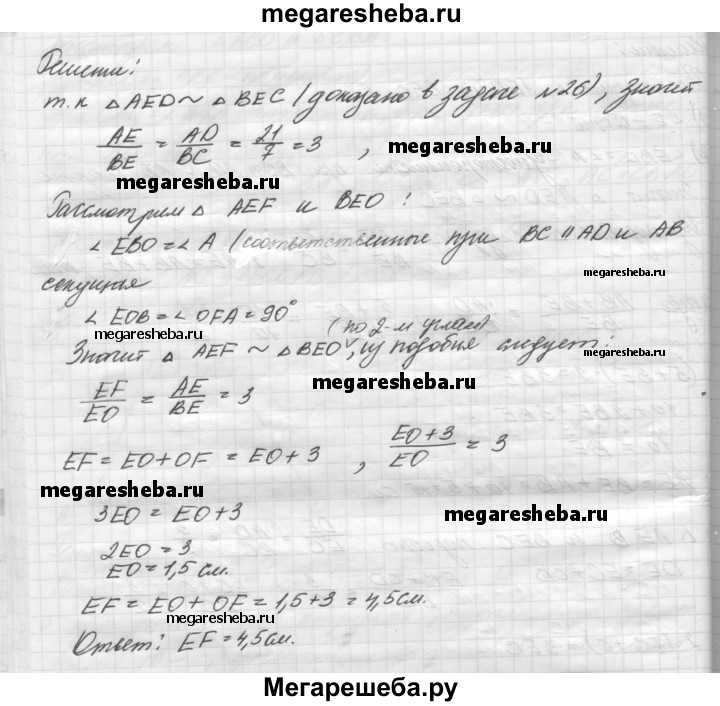 megaresheba.ru
Решение:
т.к △AED ~ △BEC (доказано в задаче №26), значит
AE/BE = AD/BC = 21/7 = 3 ,
megaresheba.ru
megaresheba.ru
Рассмотрим △ AEF и BEO :
∠EBO = ∠A (соответственные при BC ∥ AD и AB
секущая
megaresheba.ru
∠EOB = ∠OFA = 90°
megaresheba.ru
(по 2-м углам)
Значит △ AEF ~ △BEO, из подобия следует:
megaresheba.ru
EF/EO = AE/BE = 3
megaresheba.ru
EF = EO + OF = EO + 3 , (EO+3)/EO = 3
megaresheba.ru
3EO = EO + 3
megaresheba.ru
2EO = 3
EO = 1,5 см.
EF = EO + OF = 1,5 + 3 = 4,5 см.
megaresheba.ru
Ответ: EF = 4,5 см.
Мегарешеба.ру